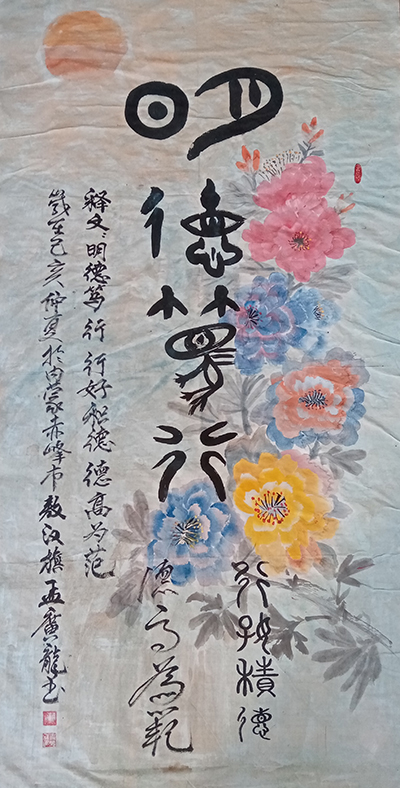 明德篤行
行好積德
德高為範
释文：明德笃行 行好积德 德高为范
歲在己亥仲夏於内蒙赤峰市敖汉旗孟廣龍书